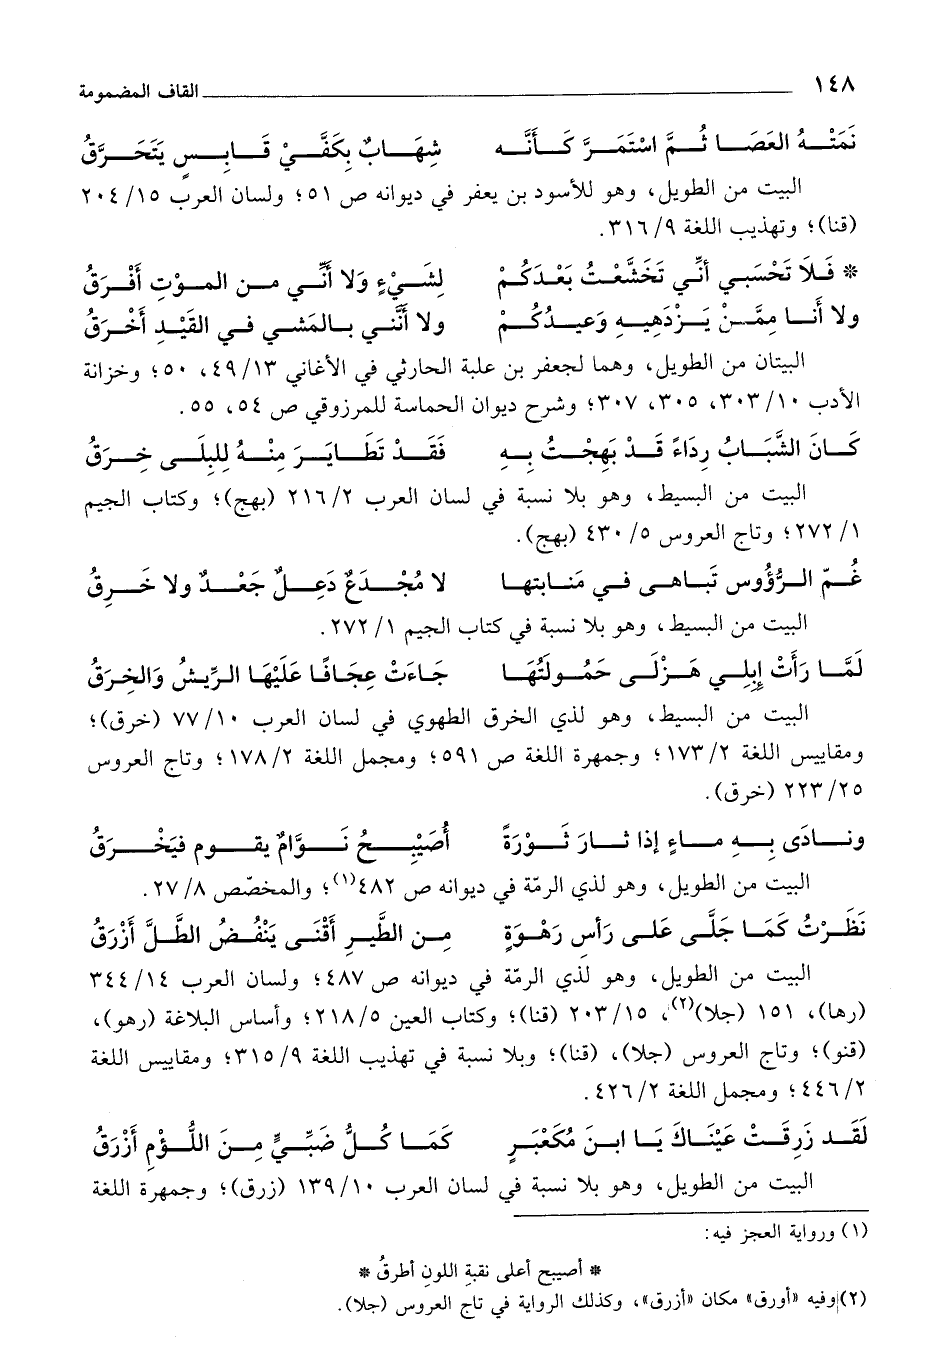 ١٤٨ القاف المضمومة
نَمَتْهُ العَصَا ثُمَّ اسْتَمَرَّ كَأَنَّه شِهَابٌ بِكَفَّيْ قَابِسٍ يَتَحَرَّقُ
البيت من الطويل، وهو للأسود بن يعفر في ديوانه ص ٥١؛ ولسان العرب ١٥/ ٢٠٤
(قنا)؛ وتهذيب اللغة ٩/ ٣١٦.
* فَلَا تَحْسَبي أنّي تَخَشَّعْتُ بَعْدَكُمْ لِشَيْءٍ وَلَا أنّي من الموْتِ أفْرَقُ
ولا أنا ممَّنْ يَزْدَهيهِ وَعيدُكُمْ ولا أنَّني بالمَشي في القَيْدِ أخْرَقُ
البيتان من الطويل، وهما لجعفر بن علبة الحارثي في الأغاني ١٣/ ٤٩، ٥٠؛ وخزانة
الأدب ١٠/ ٣٠٣، ٣٠٥، ٣٠٧؛ وشرح ديوان الحماسة للمرزوقي ص ٥٤، ٥٥.
كَانَ الشَّبَابُ رِدَاءً قَدْ بَهِجْتُ بِهِ فَقَدْ تَطَايَرَ مِنْهُ لِلبِلَى خِرَقُ
البيت من البسيط، وهو بلا نسبة في لسان العرب ٢/ ٢١٦ (بهج)؛ وكتاب الجيم
١/ ٢٧٢؛ وتاج العروس ٥/ ٤٣٠ (بهج).
غُمّ الرُّؤُوسِ تَباهى في مَنابتها لا مُجْدَعٌ دَعِلٌ جَعْدٌ ولا خَرِقُ
البيت من البسيط، وهو بلا نسبة في كتاب الجيم ١/ ٢٧٢.
لَمَّا رَأَتْ إبِلِي هَزْلَى حَمُولَتُهَا جَاءَتْ عِجَافًا عَلَيْهَا الرِّيشُ وَالخِرَقُ
البيت من البسيط، وهو لذي الخرق الطهوي في لسان العرب ١٠/ ٧٧ (خرق)؛
ومقاييس اللغة ٢/ ١٧٣؛ وجمهرة اللغة ص ٥٩١؛ ومجمل اللغة ٢/ ١٧٨؛ وتاج العروس
٢٥/ ٢٢٣ (خرق).
ونادَى بِهِ ماءٍ إذا ثارَ ثَوْرَةً أُصَيْبِحُ نَوَّامٌ يقوم فَيَخْرَقُ
البيت من الطويل، وهو لذي الرمّة في ديوانه ص ٤٨٢(١)؛ والمخصّص ٨/ ٢٧.
نَظَرْتُ كَمَا جَلَّى عَلى رَأسِ رَهْوَةٍ مِن الطَّيرِ أقْنَى يَنْفُضُ الطَّلَّ أزْرَقُ
البيت من الطويل، وهو لذي الرمّة في ديوانه ص ٤٨٧؛ ولسان العرب ١٤/ ٣٤٤
(رها)، ١٥١ (جلا)(٢)، ١٥/ ٢٠٣ (قنا)؛ وكتاب العين ٥/ ٢١٨؛ وأساس البلاغة (رهو)،
(قنو)؛ وتاج العروس (جلا)، (قنا)؛ وبلا نسبة في تهذيب اللغة ٩/ ٣١٥؛ ومقاييس اللغة
٢/ ٤٤٦؛ ومجمل اللغة ٢/ ٤٢٦.
لَقَد زَرِقَتْ عَيْنَاكَ يَا ابنَ مُكَعْبَرٍ كَمَا كُلُّ ضَبِّيٍّ مِنَ اللُّؤْمِ أزْرَقُ
البيت من الطويل، وهو بلا نسبة في لسان العرب ١٠/ ١٣٩ (زرق)؛ وجمهرة اللغة
(١) ورواية العجز فيه:
* أصيبح أعلى نقبةِ اللونِ أطرقُ *
(٢) وفيه «أورق» مكان «أزرق»، وكذلك الرواية في تاج العروس (جلا).